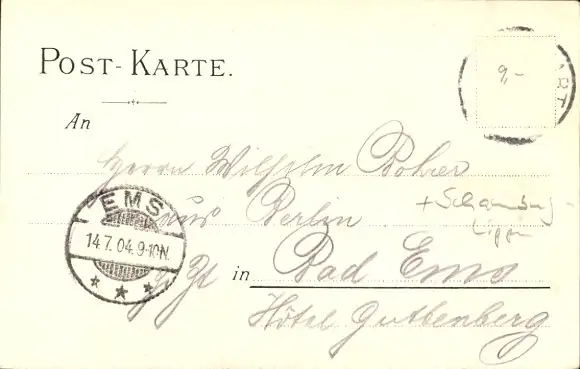 POST-KARTE.
9,-
ART
An
Herrn Wilhelm Rohrer
aus Berlin
+ Schaumburg-
Lippe
EMS
14.7.04.9-10N.
z Zt in Bad Ems
Hôtel Guttenberg